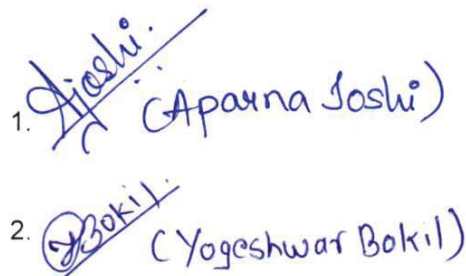 1. Ajoshi. (Aparna Joshi)
2. YBokil. (Yogeshwar Bokil)